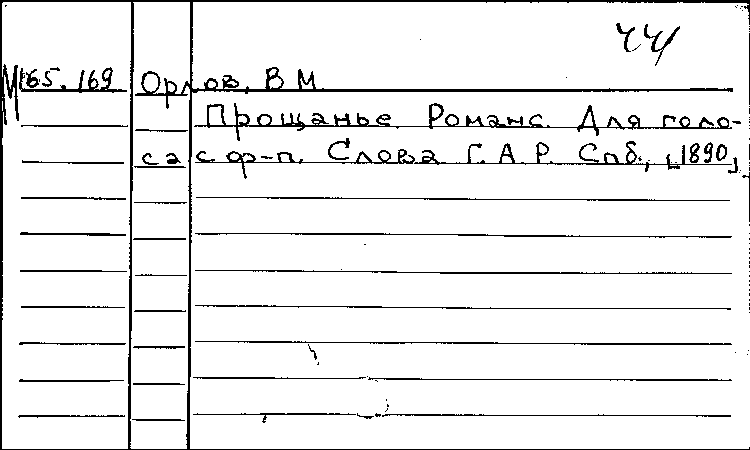 М165.169 Орлов, В М.
Прощанье. Романс. Для голо-
са с ф-п. Слова Г. А. Р. Спб., [1890].